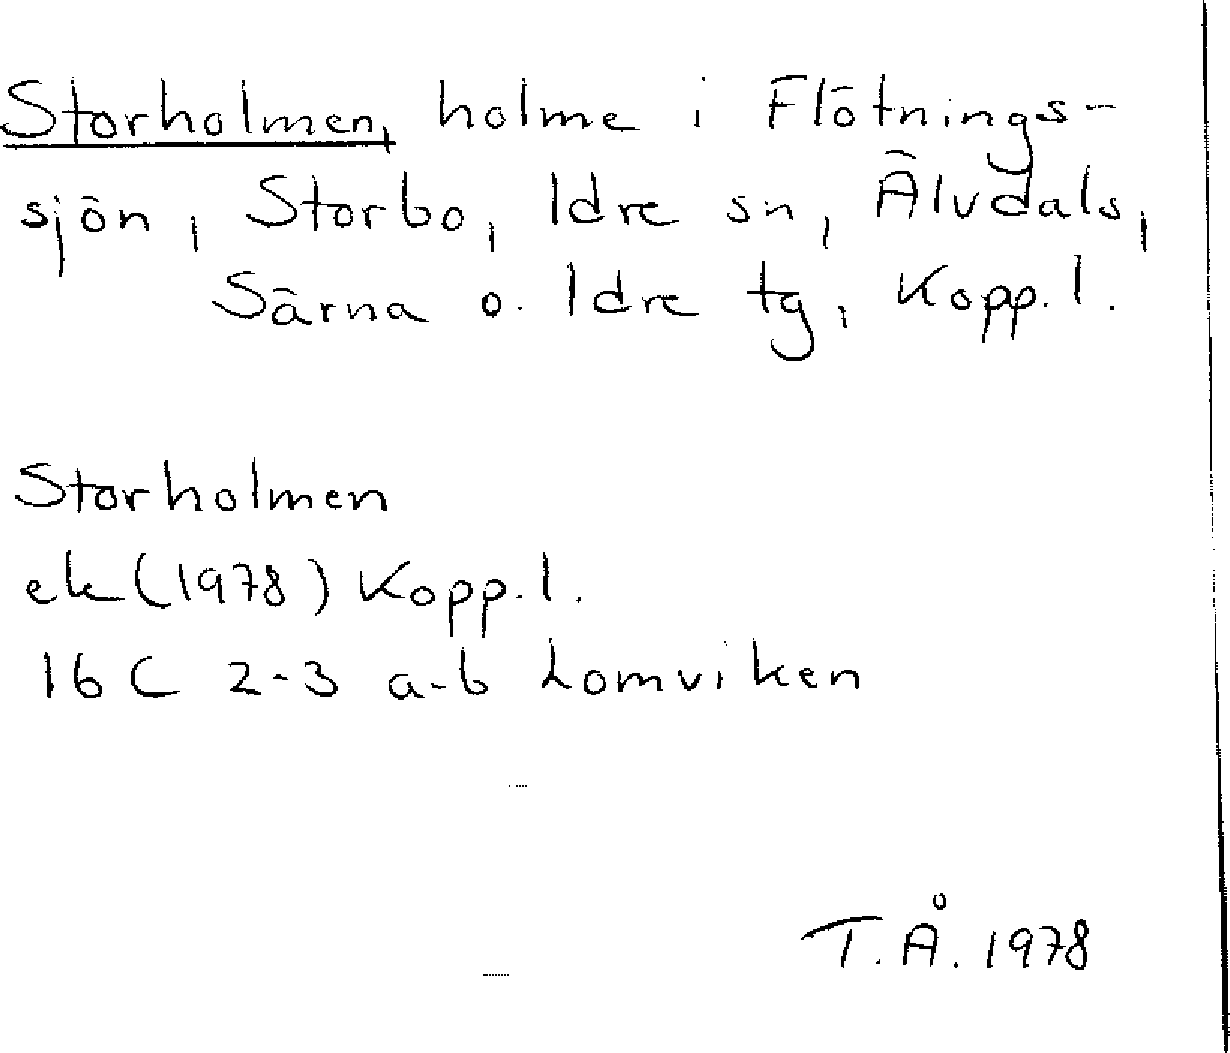 Storholmen, holme i Flötnings-
sjön, Storbo, Idre sn, Älvdals,
Särna o. Idre tg, Kopp. l.
Storholmen
ek (1978) Kopp. l.
16 C 2-3 a-b Lomviken
T. Å. 1978